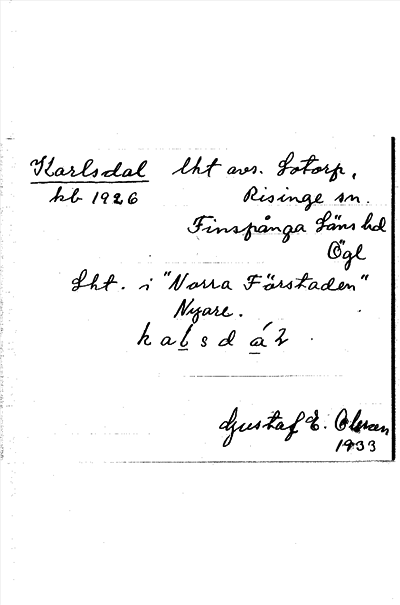 Karlsdal lht avs. Lotorp,
kb 1926 Risinge sn.
Finspånga Läns hd
Ögl
Lht. i "Norra Förstaden"
Nyare.
k a l s d á l.
Gustaf E.
1933